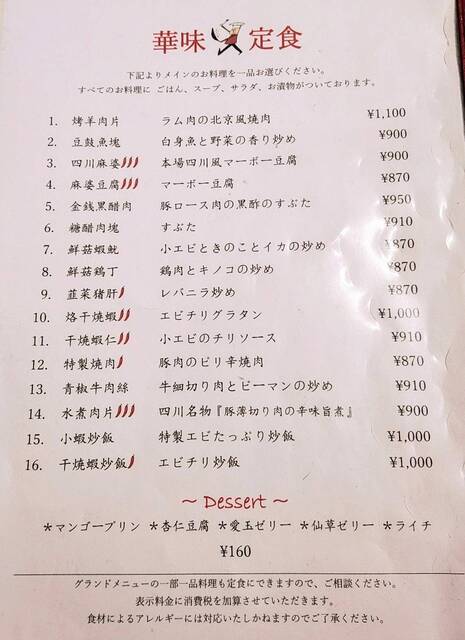 華味 定食
下記よりメインのお料理を一品お選びください。
すべてのお料理に ごはん、スープ、サラダ、お漬物がついております。
1. 烤羊肉片 ラム肉の北京風焼肉 ¥1,100
2. 豆鼓魚塊 白身魚と野菜の香り炒め ¥900
3. 四川麻婆 本場四川風マーボー豆腐 ¥900
4. 麻婆豆腐 マーボー豆腐 ¥870
5. 金銭黒醋肉 豚ロース肉の黒酢のすぶた ¥950
6. 糖醋肉塊 すぶた ¥910
7. 鮮菇蝦魷 小エビときのことイカの炒め ¥870
8. 鮮菇鶏丁 鶏肉とキノコの炒め ¥870
9. 韮菜猪肝 レバニラ炒め ¥870
10. 烙干焼蝦 エビチリグラタン ¥1,000
11. 干焼蝦仁 小エビのチリソース ¥910
12. 特製焼肉 豚肉のピリ辛焼肉 ¥870
13. 青椒牛肉絲 牛細切り肉とピーマンの炒め ¥910
14. 水煮肉片 四川名物『豚薄切り肉の辛味旨煮』 ¥900
15. 小蝦炒飯 特製エビたっぷり炒飯 ¥1,000
16. 干焼蝦炒飯 エビチリ炒飯 ¥1,000
～ Dessert ～
＊マンゴープリン ＊杏仁豆腐 ＊愛玉ゼリー ＊仙草ゼリー ＊ライチ
¥160
グランドメニューの一部一品料理も定食にできますので、ご相談ください。
表示料金に消費税を加算させていただきます。
食材によるアレルギーには対応いたしかねますのでご了承ください。